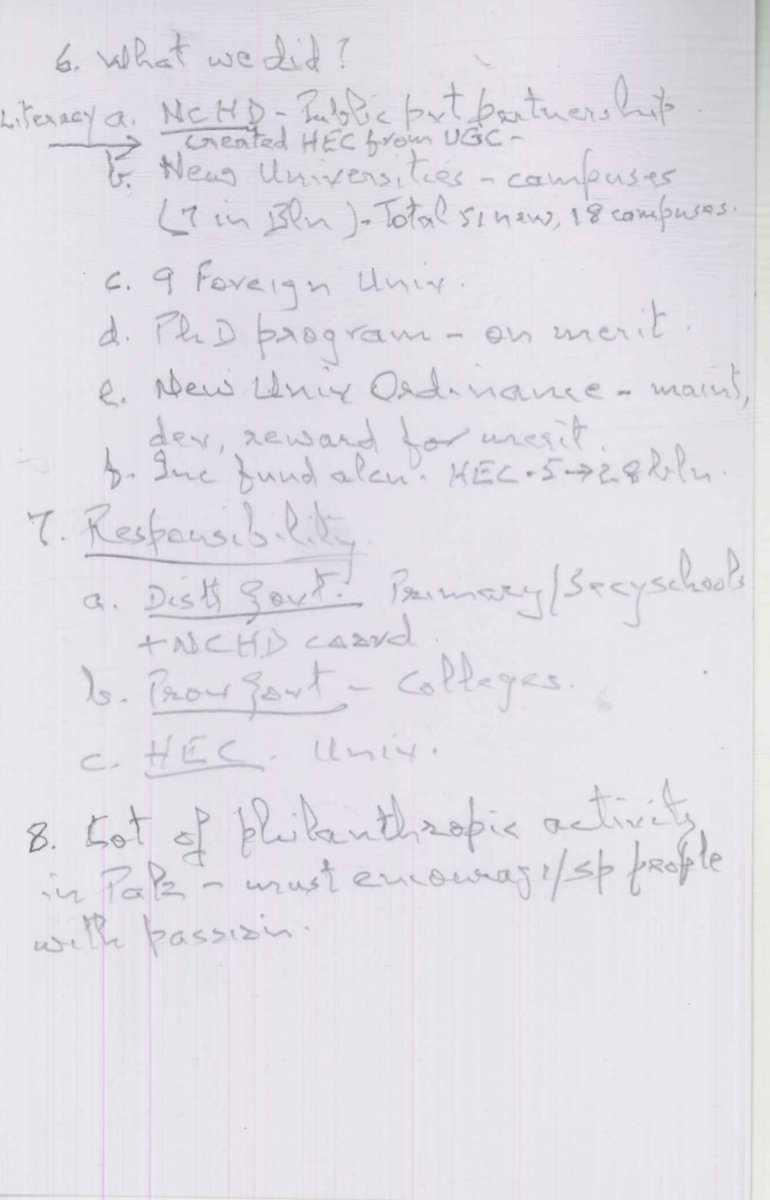 6. What we did?
Literacy a. NCHD - Public pvt partnership.
→ Created HEC from UGC -
b. New Universities - campuses
(7 in Bln) - Total 51 new, 18 campuses.
c. 9 Foreign Univ.
d. PhD program - on merit.
e. New Univ Ordinance - maint,
dev, reward for merit.
f. Inc fund alcn. HEC .5→28 bln.
7. Responsibility.
a. Distt Govt. Primary/Secy schools
+ NCHD coord.
b. Prov Govt - Colleges.
c. HEC. Univ.
8. Lot of philanthropic activity
in Pak - must encourage/sp people
with passion.